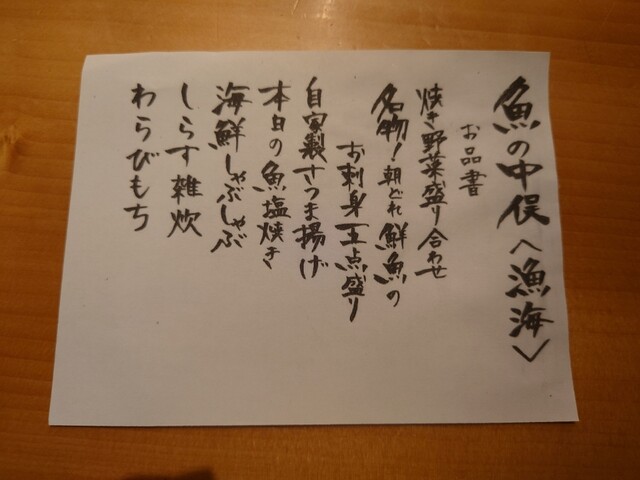 魚の中俣〈漁海〉
お品書
焼き野菜盛り合わせ
名物!朝どれ鮮魚の
お刺身五点盛り
自家製さつま揚げ
本日の魚塩焼き
海鮮しゃぶしゃぶ
しらす雑炊
わらびもち